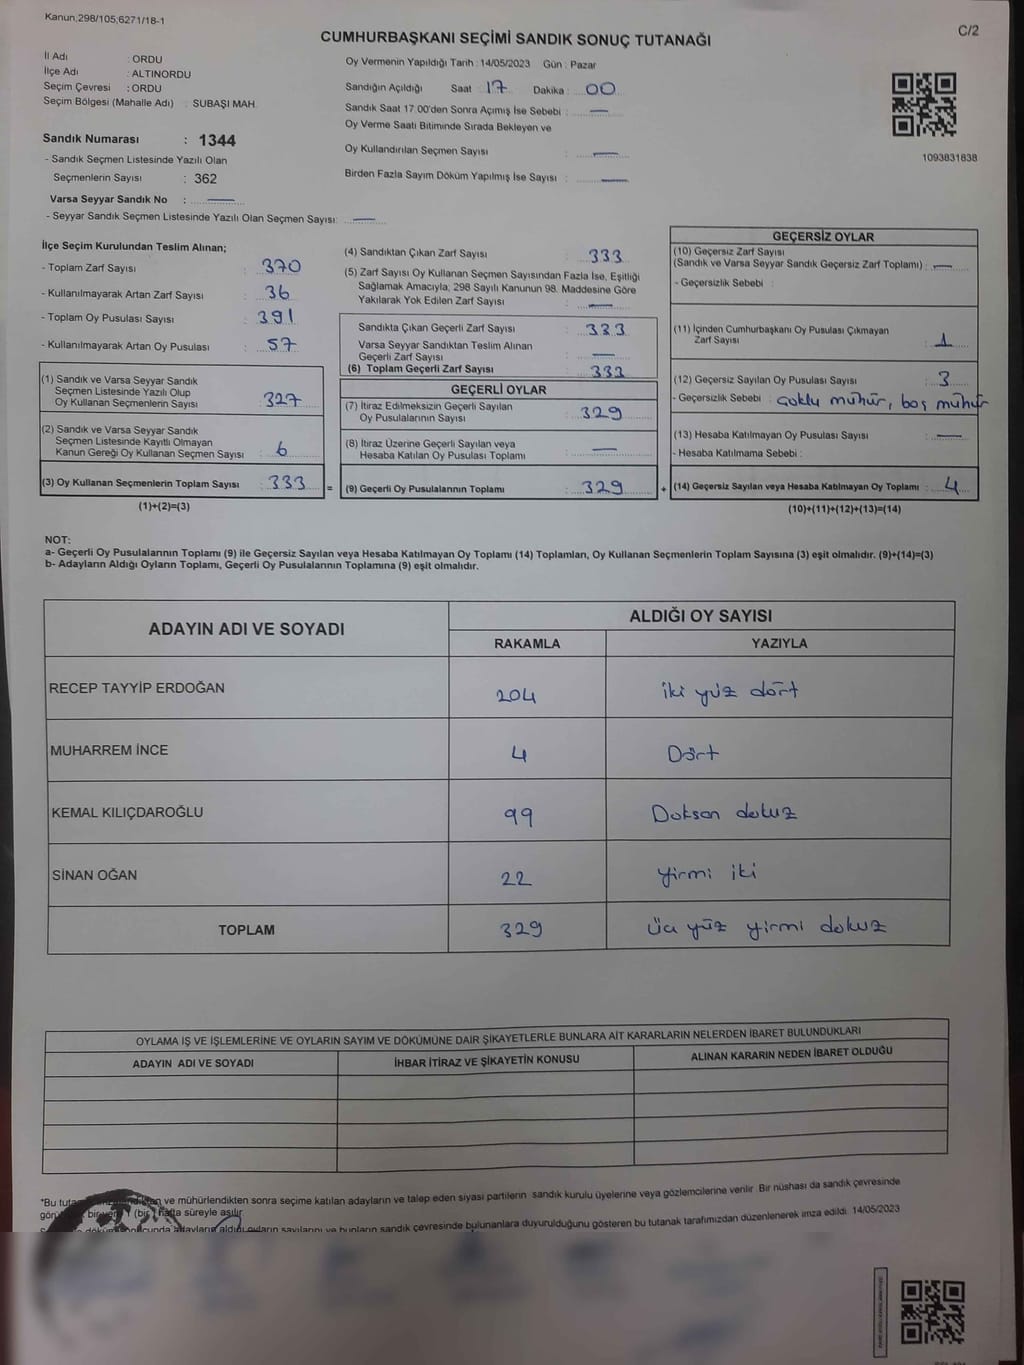 Kanun,298/105,6271/18-1
C/2
CUMHURBAŞKANI SEÇİMİ SANDIK SONUÇ TUTANAĞI
İl Adı : ORDU
İlçe Adı : ALTINORDU
Seçim Çevresi : ORDU
Seçim Bölgesi (Mahalle Adı) : SUBAŞI MAH.
Sandık Numarası : 1344
- Sandık Seçmen Listesinde Yazılı Olan
Seçmenlerin Sayısı : 362
Varsa Seyyar Sandık No : —
- Seyyar Sandık Seçmen Listesinde Yazılı Olan Seçmen Sayısı: —
Oy Vermenin Yapıldığı Tarih : 14/05/2023 Gün : Pazar
Sandığın Açıldığı Saat : 17 Dakika : 00
Sandık Saat 17:00'den Sonra Açımış İse Sebebi : —
Oy Verme Saati Bitiminde Sırada Bekleyen ve
Oy Kullandırılan Seçmen Sayısı : —
Birden Fazla Sayım Döküm Yapılmış İse Sayısı : —
1093831838
İlçe Seçim Kurulundan Teslim Alınan;
- Toplam Zarf Sayısı : 370
- Kullanılmayarak Artan Zarf Sayısı : 36
- Toplam Oy Pusulası Sayısı : 391
- Kullanılmayarak Artan Oy Pusulası : 57
(1) Sandık ve Varsa Seyyar Sandık
Seçmen Listesinde Yazılı Olup
Oy Kullanan Seçmenlerin Sayısı : 327
(2) Sandık ve Varsa Seyyar Sandık
Seçmen Listesinde Kayıtlı Olmayan
Kanun Gereği Oy Kullanan Seçmen Sayısı : 6
(3) Oy Kullanan Seçmenlerin Toplam Sayısı : 333 =
(1)+(2)=(3)
(4) Sandıktan Çıkan Zarf Sayısı : 333
(5) Zarf Sayısı Oy Kullanan Seçmen Sayısından Fazla İse, Eşitliği
Sağlamak Amacıyla, 298 Sayılı Kanunun 98. Maddesine Göre
Yakılarak Yok Edilen Zarf Sayısı : —
Sandıkta Çıkan Geçerli Zarf Sayısı : 333
Varsa Seyyar Sandıktan Teslim Alınan
Geçerli Zarf Sayısı : —
(6) Toplam Geçerli Zarf Sayısı : 333
GEÇERLİ OYLAR
(7) İtiraz Edilmeksizin Geçerli Sayılan
Oy Pusulalarının Sayısı : 329
(8) İtiraz Üzerine Geçerli Sayılan veya
Hesaba Katılan Oy Pusulası Toplamı : —
(9) Geçerli Oy Pusulalarının Toplamı : 329 +
GEÇERSİZ OYLAR
(10) Geçersiz Zarf Sayısı
(Sandık ve Varsa Seyyar Sandık Geçersiz Zarf Toplamı) : —
- Geçersizlik Sebebi :
(11) İçinden Cumhurbaşkanı Oy Pusulası Çıkmayan
Zarf Sayısı : 1
(12) Geçersiz Sayılan Oy Pusulası Sayısı : 3
- Geçersizlik Sebebi : Çoklu mühür, boş mühür
(13) Hesaba Katılmayan Oy Pusulası Sayısı : —
- Hesaba Katılmama Sebebi :
(14) Geçersiz Sayılan veya Hesaba Katılmayan Oy Toplamı : 4
(10)+(11)+(12)+(13)=(14)
NOT:
a- Geçerli Oy Pusulalarının Toplamı (9) ile Geçersiz Sayılan veya Hesaba Katılmayan Oy Toplamı (14) Toplamları, Oy Kullanan Seçmenlerin Toplam Sayısına (3) eşit olmalıdır. (9)+(14)=(3)
b- Adayların Aldığı Oyların Toplamı, Geçerli Oy Pusulalarının Toplamına (9) eşit olmalıdır.
ADAYIN ADI VE SOYADI
ALDIĞI OY SAYISI
RAKAMLA YAZIYLA
RECEP TAYYİP ERDOĞAN 204 iki yüz dört
MUHARREM İNCE 4 Dört
KEMAL KILIÇDAROĞLU 99 Doksan dokuz
SİNAN OĞAN 22 yirmi iki
TOPLAM 329 Üç yüz yirmi dokuz
OYLAMA İŞ VE İŞLEMLERİNE VE OYLARIN SAYIM VE DÖKÜMÜNE DAİR ŞİKAYETLERLE BUNLARA AİT KARARLARIN NELERDEN İBARET BULUNDUKLARI
ADAYIN ADI VE SOYADI İHBAR İTİRAZ VE ŞİKAYETİN KONUSU ALINAN KARARIN NEDEN İBARET OLDUĞU
*Bu ve mühürlendikten sonra seçime katılan adayların ve talep eden siyasi partilerin sandık kurulu üyelerine veya gözlemcilerine verilir. Bir nüshası da sandık çevresinde
(bir) hafta süreyle asılır.
adayların aldığı oyların sayılarını ve bunların sandık çevresinde bulunanlara duyurulduğunu gösteren bu tutanak tarafımızdan düzenlenerek imza edildi. 14/05/2023